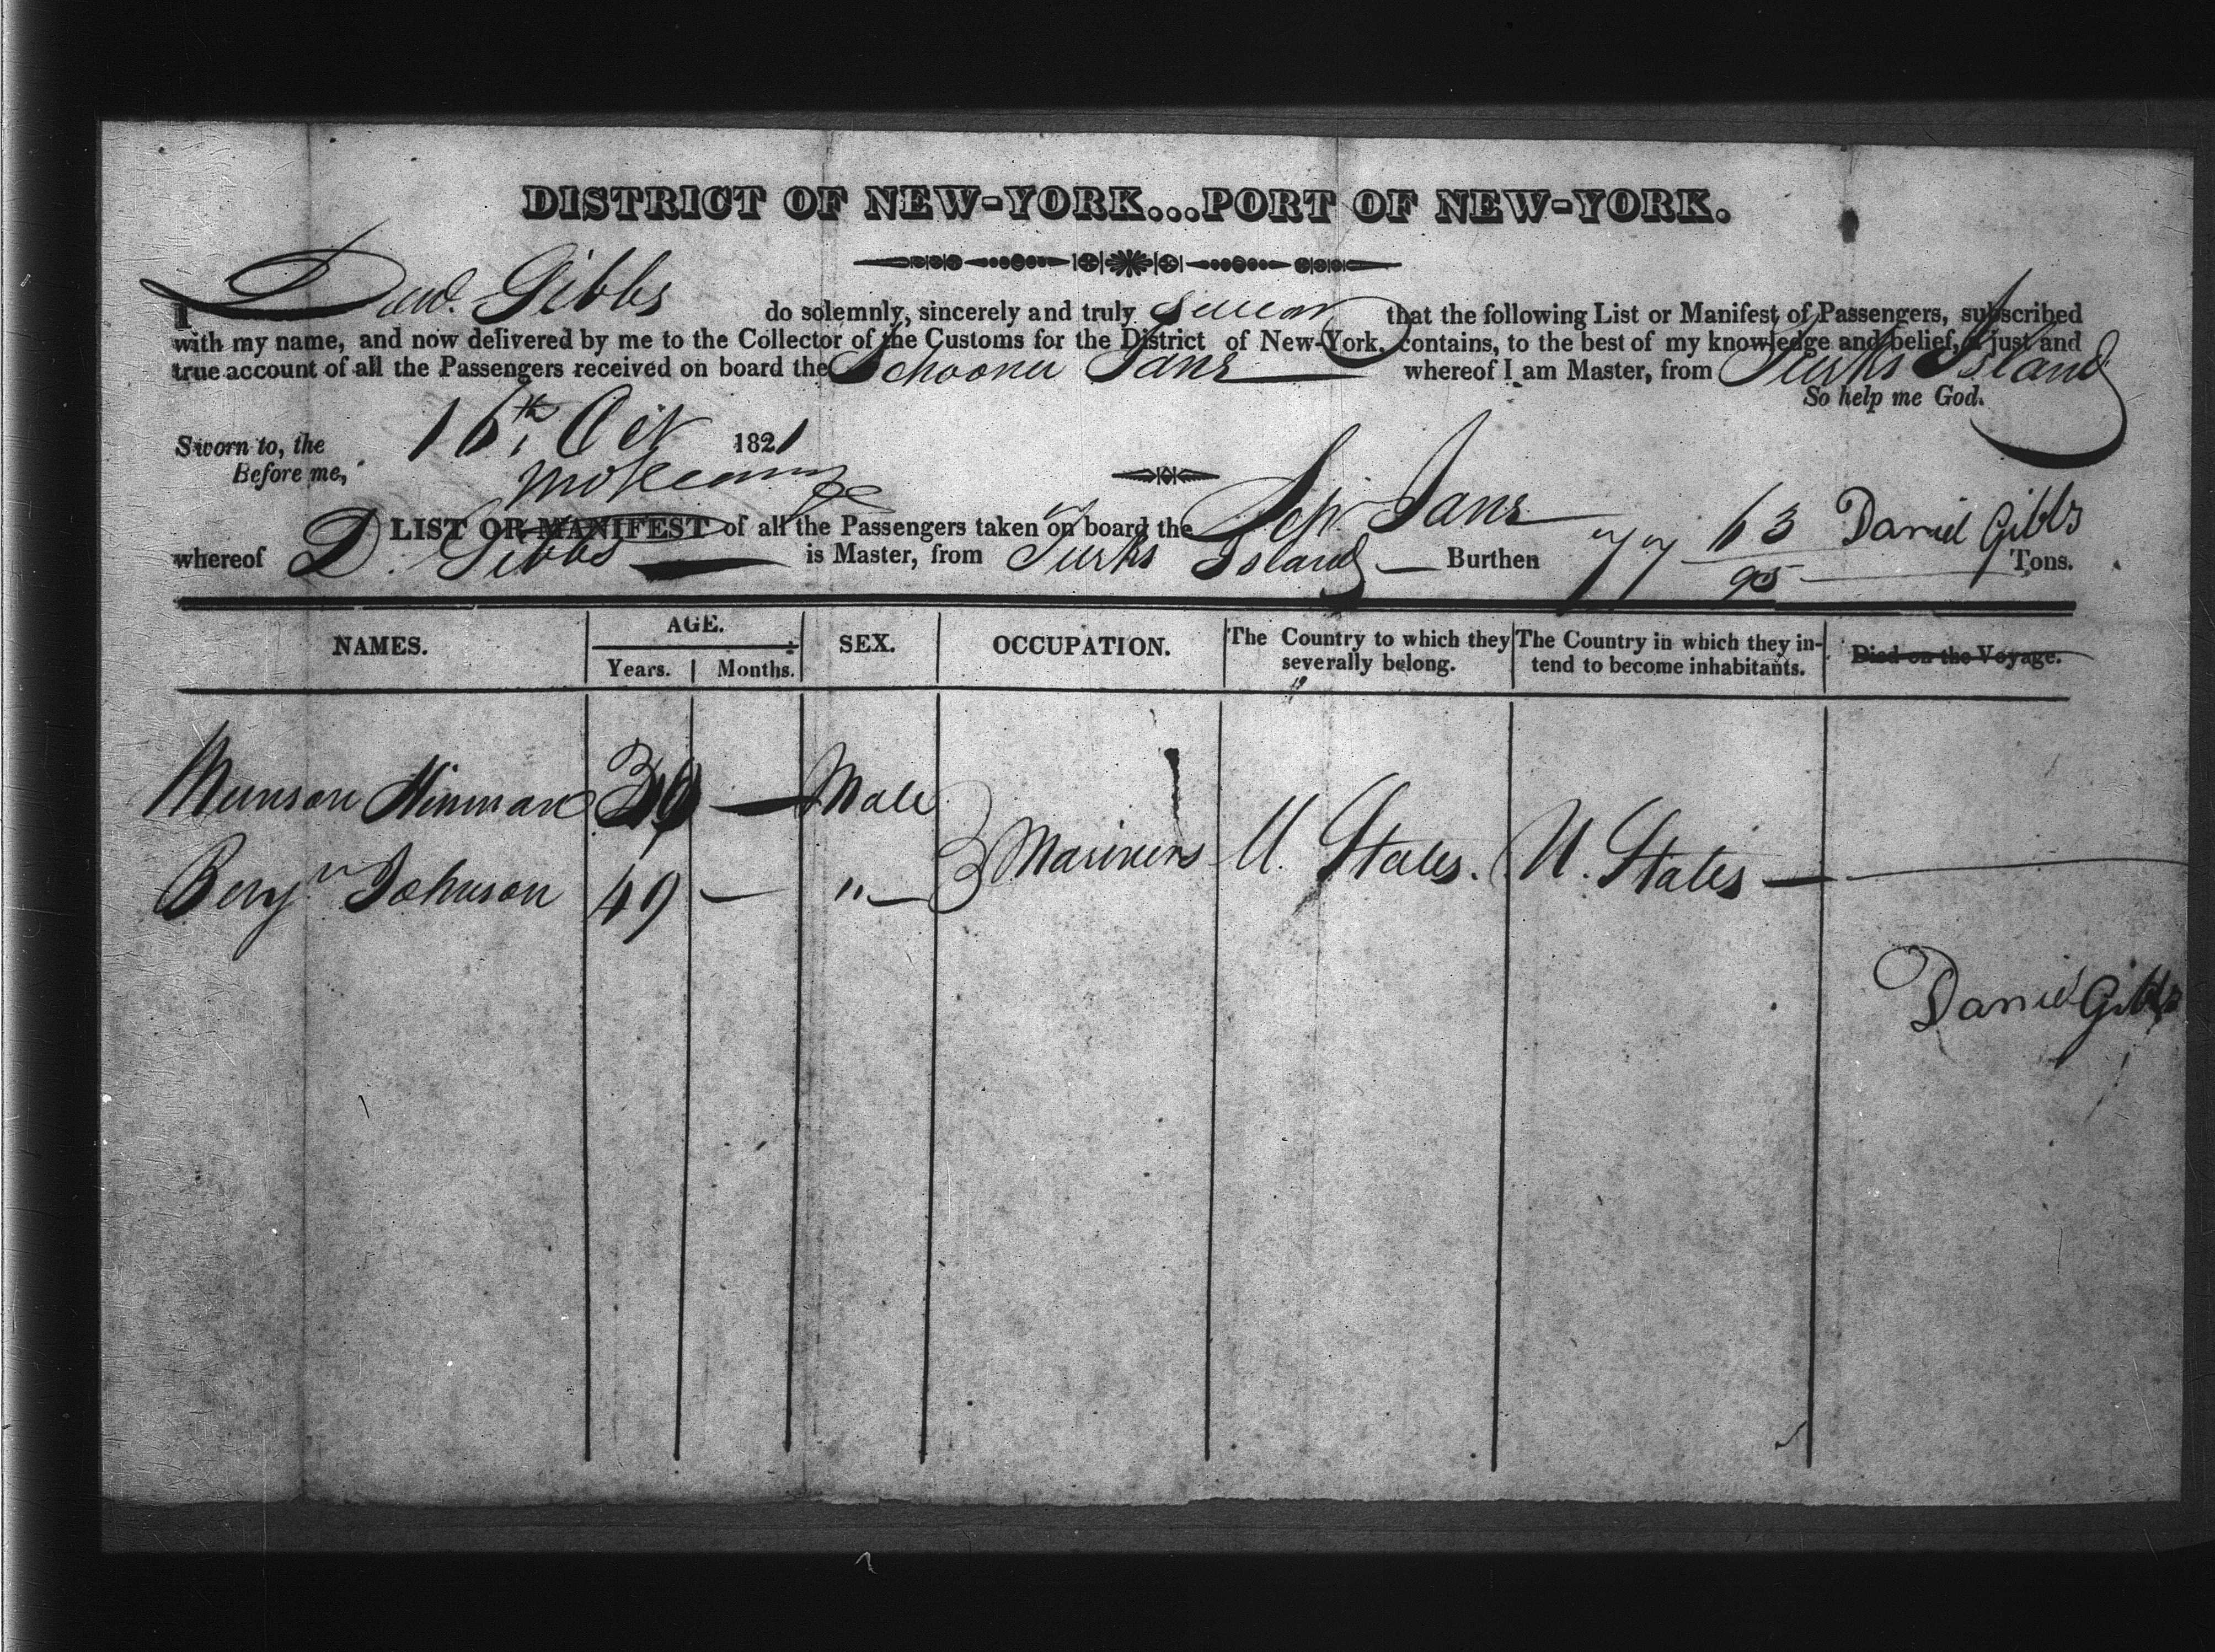 DISTRICT OF NEW-YORK...PORT OF NEW-YORK.
I Danl. Gibbs do solemnly, sincerely and truly swear that the following List or Manifest of Passengers, subscribed
with my name, and now delivered by me to the Collector of the Customs for the District of New-York, contains, to the best of my knowledge and belief, a just and
true account of all the Passengers received on board the Schooner Jane whereof I am Master, from Turks Island
So help me God.
Sworn to, the 16th Oct 1821
Before me,
LIST OR MANIFEST of all the Passengers taken on board the Schr Jane Daniel Gibbs
whereof D. Gibbs is Master, from Turks Island Burthen 77 63/95 Tons.
NAMES. AGE. SEX. OCCUPATION. The Country to which they severally belong. The Country in which they intend to become inhabitants. Died on the Voyage.
Years. Months.
Munson Hinman — Male
Mariners U. States. U. States —
Benjn Johnson 49 — "
Daniel Gibbs